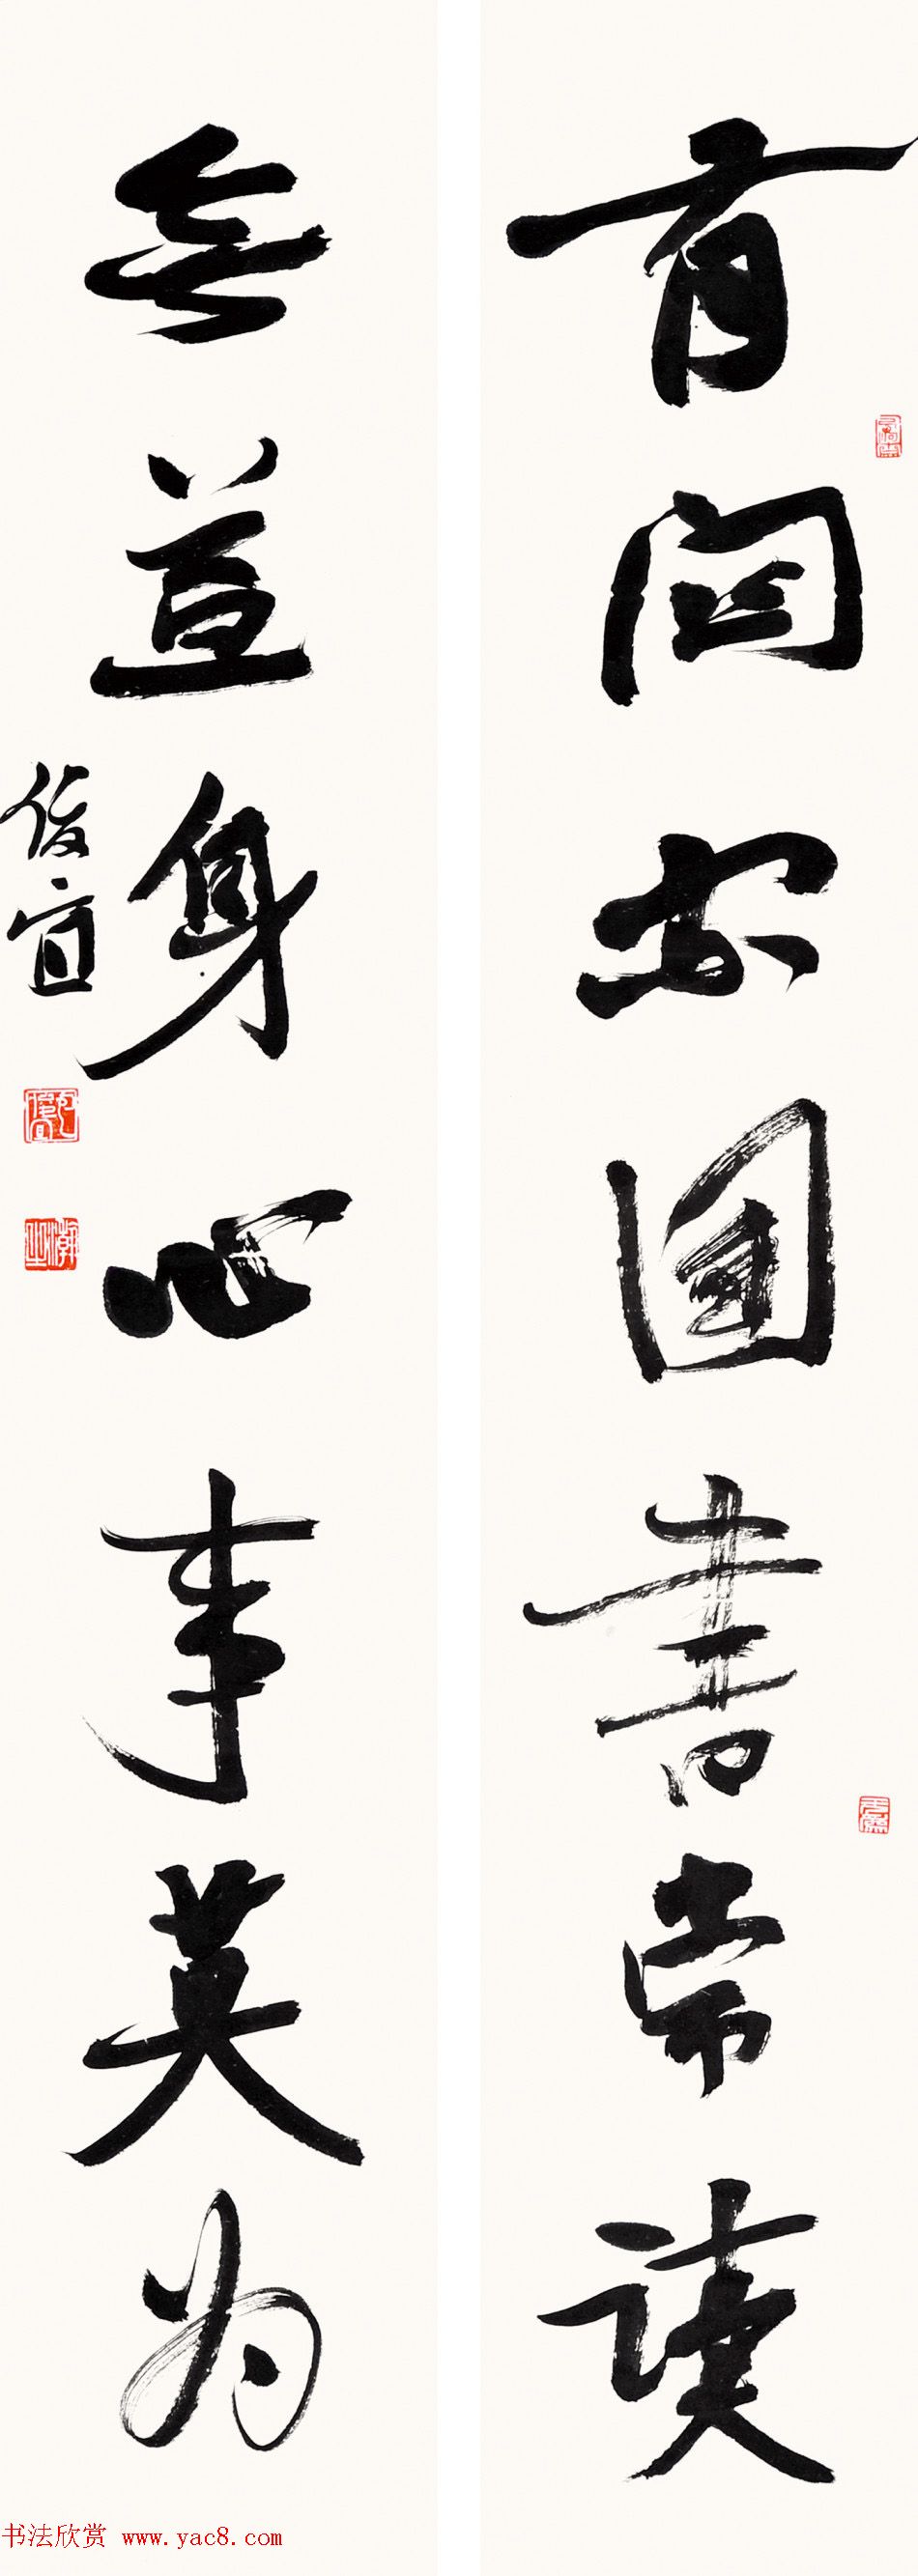 有関家國書常讀
無益身心事莫为
俊宜
书法欣赏 www.yac8.com